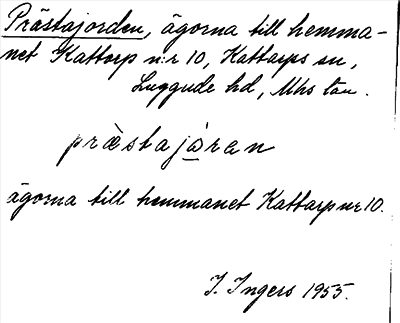 Prästajorden, ägorna till hemma-
net Kattarp n:r 10, Kattarps sn,
Luggude hd, Mhs län.
prästajoran
ägorna till hemmanet Kattarp nr 10.
I. Ingers 1955.